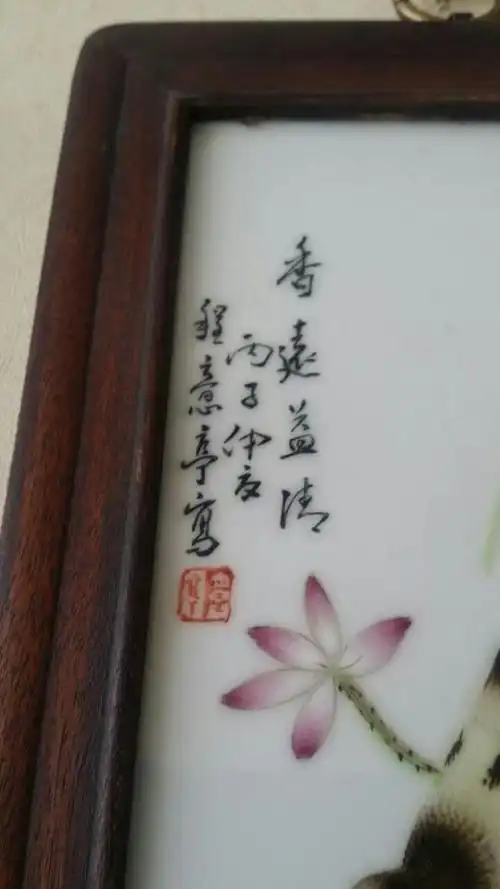 香遠益清
丙子仲夏
程意亭寫